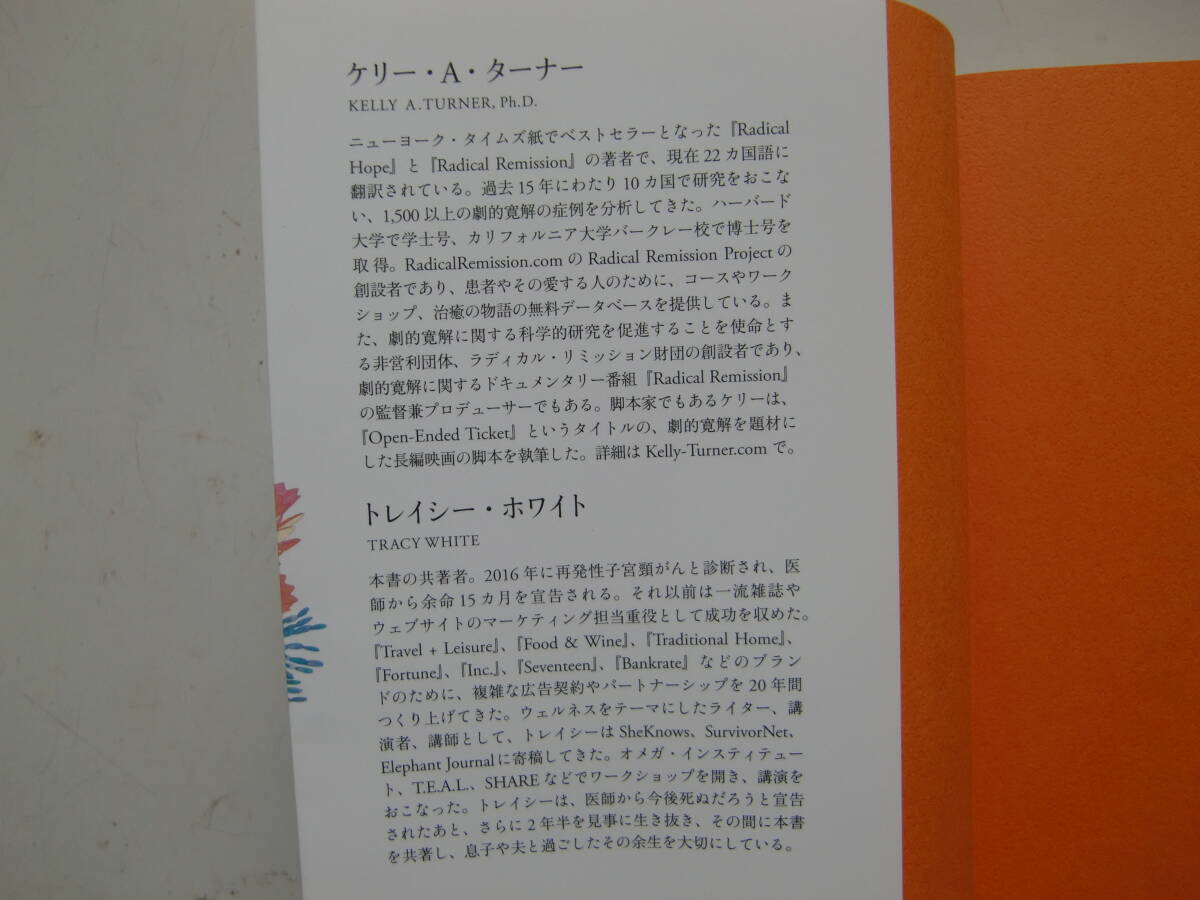 ケリー・A・ターナー
KELLY A. TURNER, Ph.D.
ニューヨーク・タイムズ紙でベストセラーとなった『Radical
Hope』と『Radical Remission』の著者で、現在 22 カ国語に
翻訳されている。過去 15 年にわたり 10 カ国で研究をおこな
い、1,500 以上の劇的寛解の症例を分析してきた。ハーバード
大学で学士号、カリフォルニア大学バークレー校で博士号を
取得。RadicalRemission.com の Radical Remission Project の
創設者であり、患者やその愛する人のために、コースやワーク
ショップ、治癒の物語の無料データベースを提供している。ま
た、劇的寛解に関する科学的研究を促進することを使命とす
る非営利団体、ラディカル・リミッション財団の創設者であり、
劇的寛解に関するドキュメンタリー番組『Radical Remission』
の監督兼プロデューサーでもある。脚本家でもあるケリーは、
『Open-Ended Ticket』というタイトルの、劇的寛解を題材に
した長編映画の脚本を執筆した。詳細は Kelly-Turner.com で。
トレイシー・ホワイト
TRACY WHITE
本書の共著者。2016 年に再発性子宮頸がんと診断され、医
師から余命 15 カ月を宣告される。それ以前は一流雑誌や
ウェブサイトのマーケティング担当重役として成功を収めた。
『Travel + Leisure』、『Food & Wine』、『Traditional Home』、
『Fortune』、『Inc.』、『Seventeen』、『Bankrate』などのブラン
ドのために、複雑な広告契約やパートナーシップを 20 年間
つくり上げてきた。ウェルネスをテーマにしたライター、講
演者、講師として、トレイシーは SheKnows、SurvivorNet、
Elephant Journal に寄稿してきた。オメガ・インスティテュー
ト、T.E.A.L.、SHARE などでワークショップを開き、講演を
おこなった。トレイシーは、医師から今後死ぬだろうと宣告
されたあと、さらに 2 年半を見事に生き抜き、その間に本書
を共著し、息子や夫と過ごしたその余生を大切にしている。